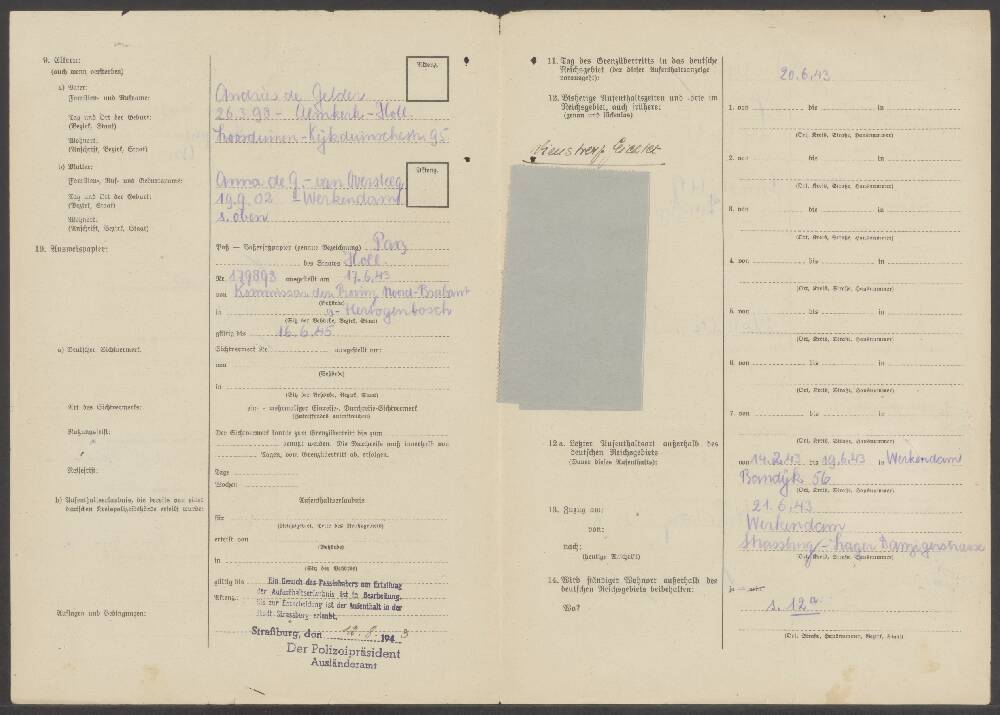 9. Eltern:
(auch wenn verstorben)
a) Vater:
Familien- und Rufname:
Tag und Ort der Geburt:
(Bezirk, Staat)
Wohnort:
(Anschrift, Bezirk, Staat)
b) Mutter:
Familien-, Ruf- und Geburtsname:
Tag und Ort der Geburt:
(Bezirk, Staat)
Wohnort:
(Anschrift, Bezirk, Staat)
10. Ausweispapier:
a) Deutscher Sichtvermerk:
Art des Sichtvermerks:
Nutzungsfrist:
Reisefrist:
b) Aufenthaltserlaubnis, die bereits von einer
deutschen Kreispolizeibehörde erteilt wurde:
Auflagen und Bedingungen:
Andries de Gelder
26.3.98 - Almkerk - Holl.
95
Anna de G. - van Oversteeg
19.9.02 Werkendam
s. oben
Paß — Paßersatzpapier (genaue Bezeichnung) Pass
des Staates Holl
Nr. 179898 ausgestellt am 17.6.43
von Kommissar der Provinz Noord-Brabant
(Behörde)
in s-Hertogenbosch
(Sitz der Behörde, Bezirk, Staat)
gültig bis 16.6.45
Sichtvermerk Nr. ausgestellt am:
von
(Behörde)
in
(Sitz der Behörde, Bezirk, Staat)
ein- - mehrmaliger Einreise-, Durchreise-Sichtvermerk
(Zutreffendes unterstreichen)
Der Sichtvermerk konnte zum Grenzübertritt bis zum
benutzt werden. Die Ausreise muß innerhalb von
Tagen, vom Grenzübertritt ab, erfolgen.
Tage
Wochen
Aufenthaltserlaubnis
für
(Reichsgebiet, Teile des Reichsgebiets)
erteilt von
(Behörde)
in
(Sitz der Behörde)
gültig bis
Aktenz.:
Ein Gesuch des Passinhabers um Erteilung
der Aufenthaltserlaubnis ist in Bearbeitung.
Bis zur Entscheidung ist der Aufenthalt in der
Stadt Strassburg erlaubt.
Straßburg, den 12.8. 1943
Der Polizeipräsident
Ausländeramt
Aktenz.
Aktenz.
11. Tag des Grenzübertritts in das deutsche
Reichsgebiet (der dieser Aufenthaltsanzeige
vorausgeht):
12. Bisherige Aufenthaltszeiten und -orte im
Reichsgebiet, auch frühere:
(genau und lückenlos)
12a. Letzter Aufenthaltsort außerhalb des
deutschen Reichsgebiets
(Dauer dieses Aufenthalts):
13. Zuzug am:
von:
nach:
(heutige Anschrift)
14. Wird ständiger Wohnort außerhalb des
deutschen Reichsgebiets beibehalten:
Wo?
20.6.43
1. von bis in
(Ort, Kreis, Straße, Hausnummer)
2. von bis in
(Ort, Kreis, Straße, Hausnummer)
3. von bis in
(Ort, Kreis, Straße, Hausnummer)
4. von bis in
(Ort, Kreis, Straße, Hausnummer)
5. von bis in
(Ort, Kreis, Straße, Hausnummer)
6. von bis in
(Ort, Kreis, Straße, Hausnummer)
7. von bis in
(Ort, Kreis, Straße, Hausnummer)
von 14.2.43 bis 19.6.43 in Werkendam
Bandijk 56
(Ort, Kreis, Straße, Hausnummer)
21.6.43
Werkendam
Strassburg - Lager Danzigerstrasse
(Ort, Kreis, Straße, Hausnummer)
ja — nein
s. 12a
(Ort, Straße, Hausnummer, Bezirk, Staat)